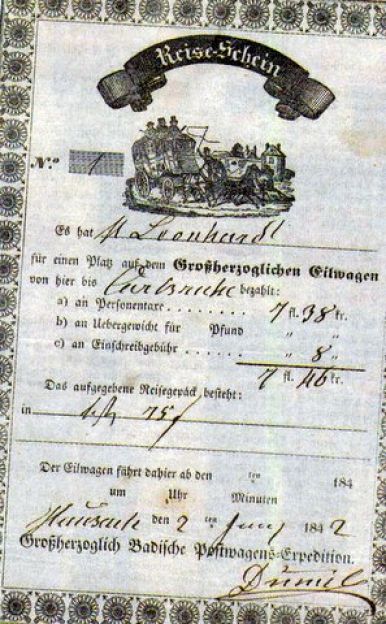 Reise-Schein
No. 1
Es hat M Leonhardt
für einen Platz auf dem Großherzoglichen Eilwagen
von hier bis Carlsruhe bezahlt:
a) an Personentaxe 7 fl. 38 kr.
b) an Uebergewicht für Pfund „ „
c) an Einschreibgebühr „ 8 „
7 fl. 46 kr.
Das aufgegebene Reisegepäck, besteht:
in
Der Eilwagen fährt dahier ab den ten 184
um Uhr Minuten
Hausach den 2 ten Juny 1842
Großherzoglich Badische Postwagens-Expedition.